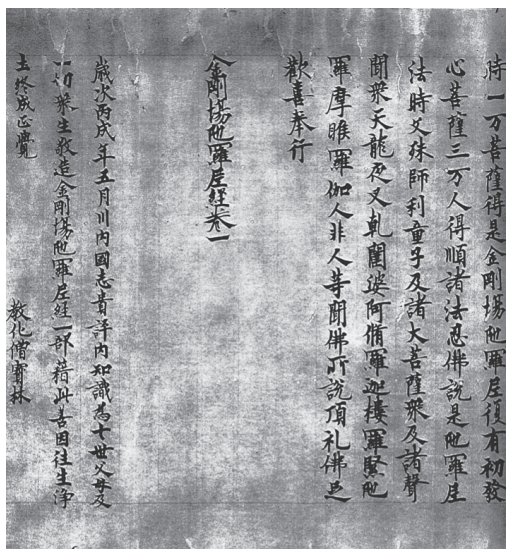 時一万菩薩得是金剛場陁羅尼復有初發
心菩薩三万人得順諸法忍佛說是陁羅尼
法時文殊師利童子及諸大菩薩衆及諸聲
聞衆天龍夜叉乹闥婆阿脩羅迦樓羅緊陁
羅摩睺羅伽人非人等聞佛所說頂礼佛足
歡喜奉行
金剛場陁羅尼經卷一
歲次丙戌年五月川內國志貴評內知識爲七世父母及
一切衆生敬造金剛場陁羅尼經一部藉此善因往生淨
土終成正覺
教化僧寶林